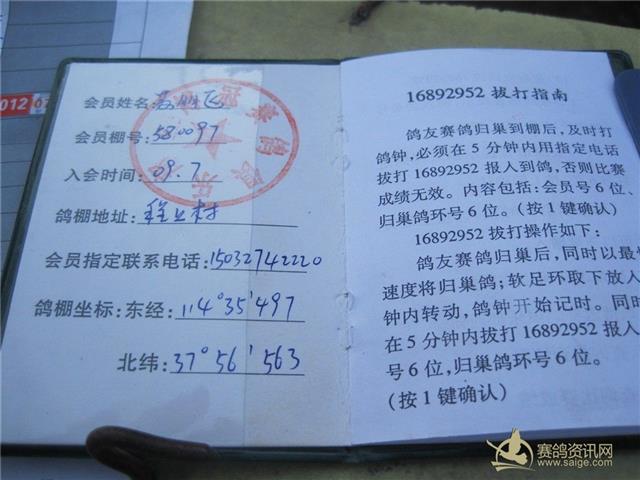 012 07
会员姓名:苏鹏飞
会员棚号:580097
入会时间:09.7
鸽棚地址:程上村
会员指定联系电话:15032742220
鸽棚坐标:东经:114°35'497
北纬:37°56'563
16892952 拔打指南
鸽友赛鸽归巢到棚后,及时打
鸽钟,必须在 5 分钟内用指定电话
拔打 16892952 报人到鸽,否则比赛
成绩无效。内容包括:会员号 6 位、
归巢鸽环号 6 位。(按 1 键确认)
16892952 拔打操作如下:
鸽友赛鸽归巢后,同时以最快
速度将归巢鸽;软足环取下放入
钟内转动,鸽钟开始记时。同时
在 5 分钟内拔打 16892952 报人
号 6 位,归巢鸽环号 6 位。
(按 1 键确认)
赛鸽资讯网
www.saige.com